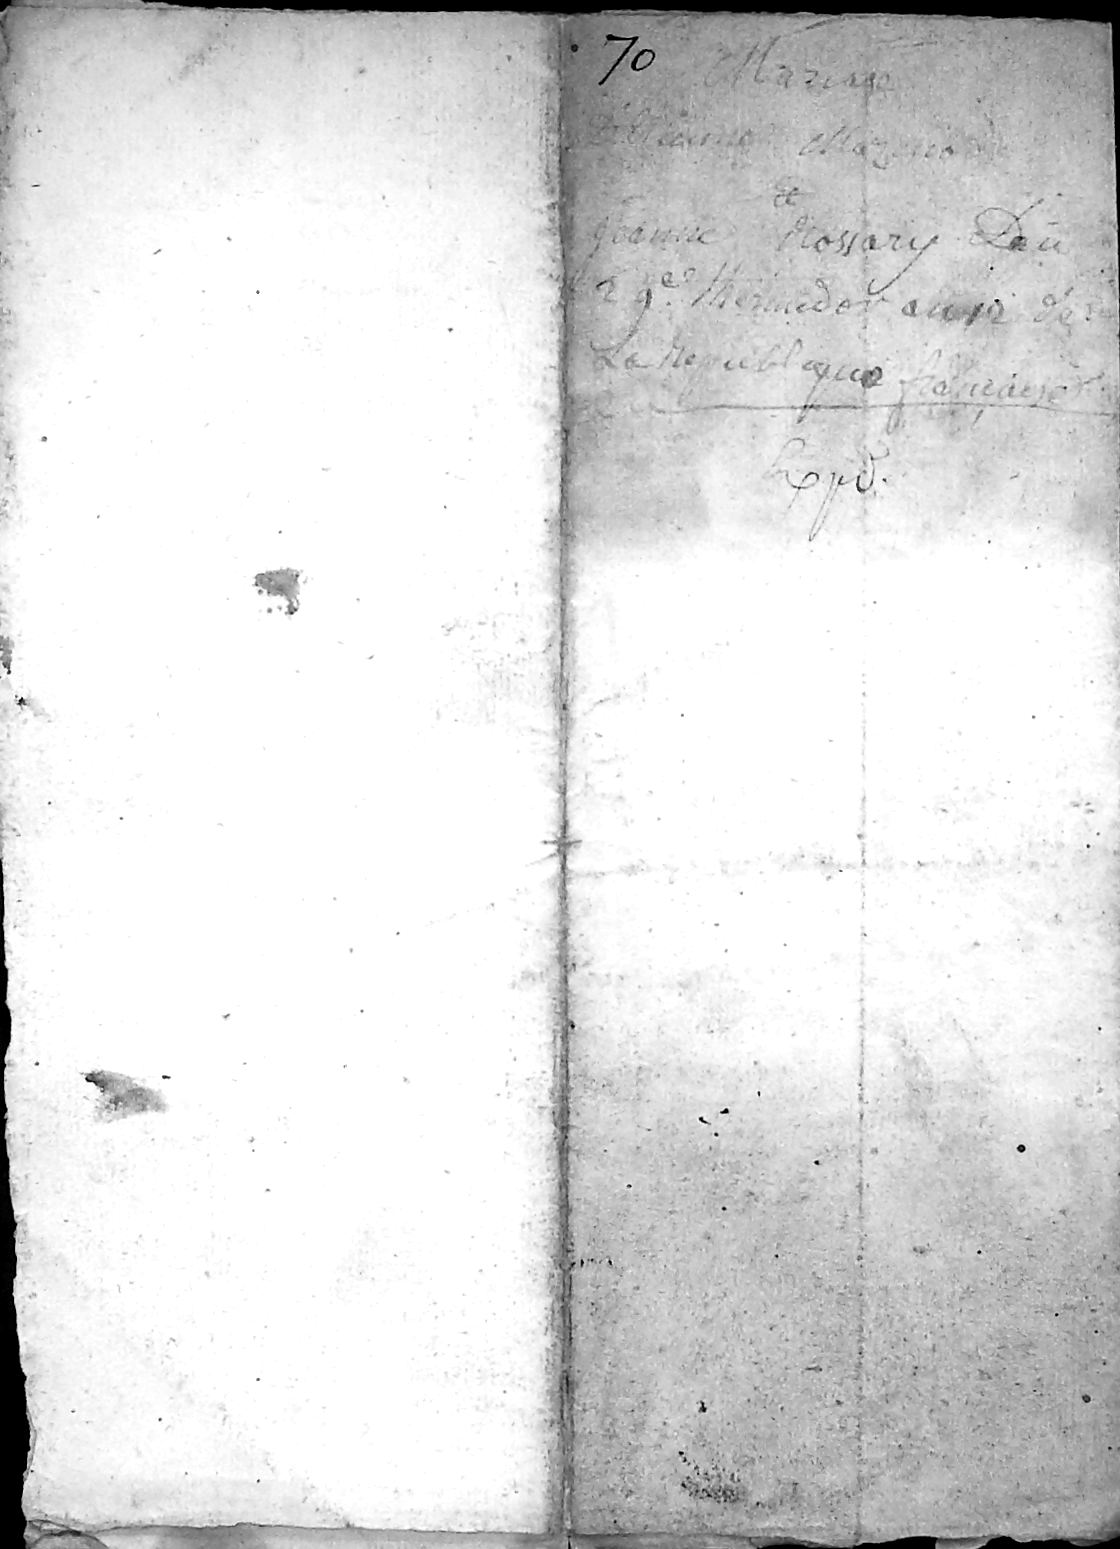 70 Mariage
Etienne
&
Jeanne Rossary Du
29e. thermidor an 12 de
La Republique française
Expd.